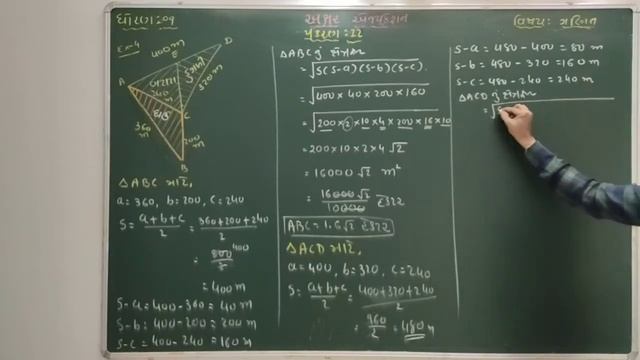 ધોરણ: 09
અક્ષર એજ્યુકેશન
પ્રકરણ: 12
વિષય: ગણિત
Ex-4
400 m
D
A
E
240
320 m
C
360 m
200 m
B
△ABC માટે,
a = 360, b = 200, c = 240
S = a+b+c / 2 = 360+200+240 / 2
= 800 / 2 400
= 400 m
S-a = 400-360 = 40 m
S-b = 400-200 = 200 m
S-c = 400-240 = 160 m
△ABC નું ક્ષેત્રફળ
= √S(S-a)(S-b)(S-c).
= √400 × 40 × 200 × 160
= √200 × 2 × 10 × 4 × 200 × 16 × 10
= 200 × 10 × 2 × 4 √2
= 16000 √2 m²
= 16000 √2 / 10000 હેક્ટર
ABC = 1.6 √2 હેક્ટર
△ACD માટે,
a = 400, b = 320, c = 240
S = a+b+c / 2 = 400+320+240 / 2
= 960 / 2 = 480 m
S-a = 480 - 400 = 80 m
S-b = 480 - 320 = 160 m
S-c = 480 - 240 = 240 m
△ACD નું ક્ષેત્રફળ
= √